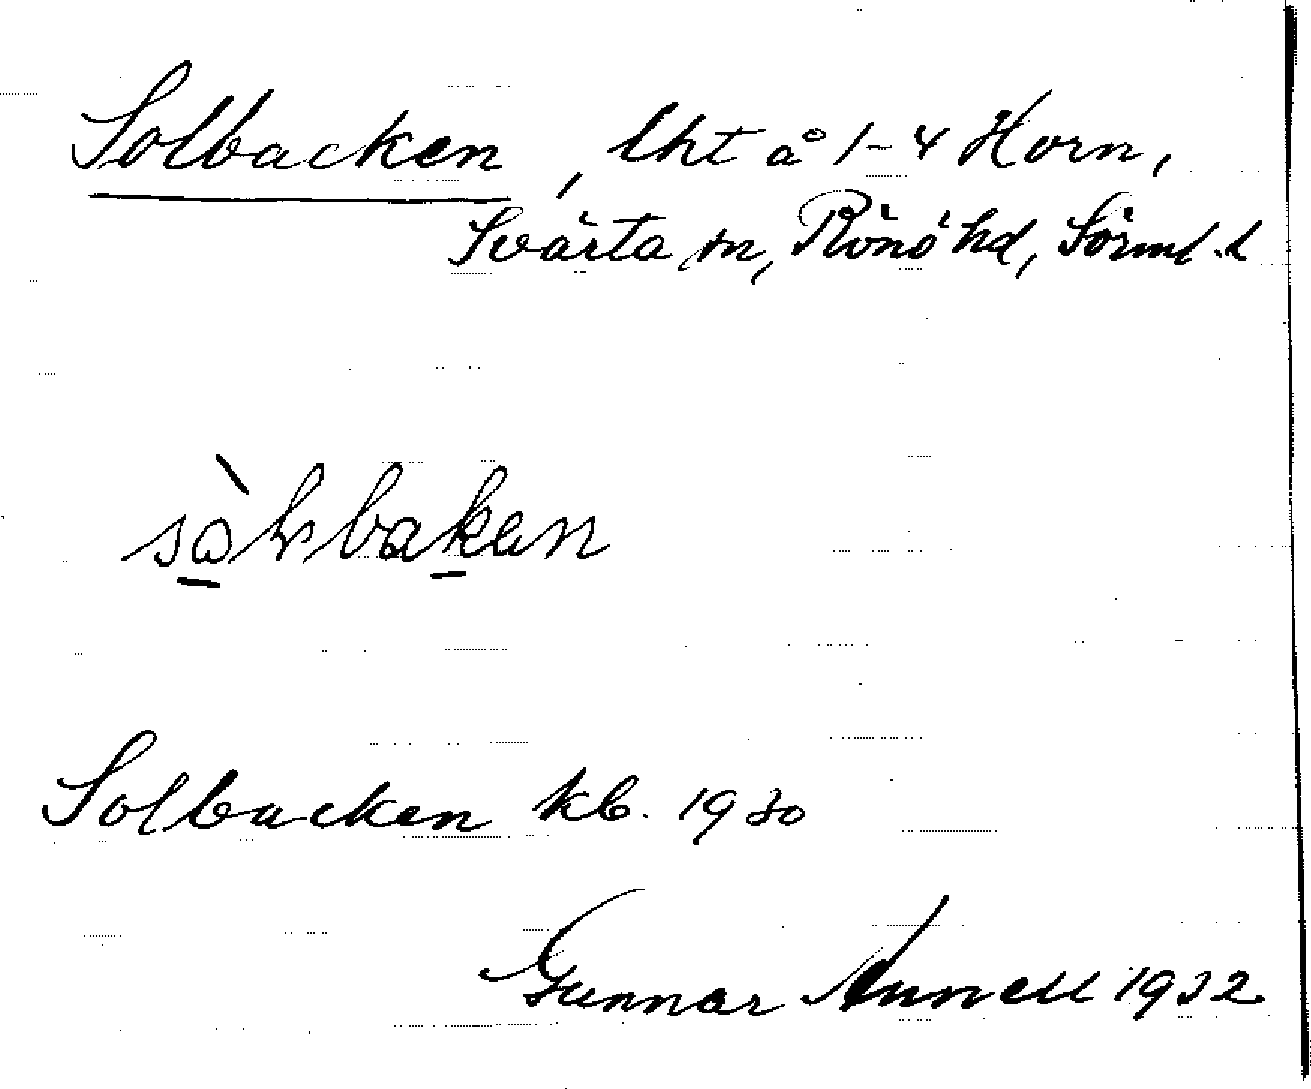 Solbacken, lht å 1-4 Horn,
Svärta sn, Rönö hd, Sörml. l
Solbacken kb. 1930
Gunnar Annell 1932